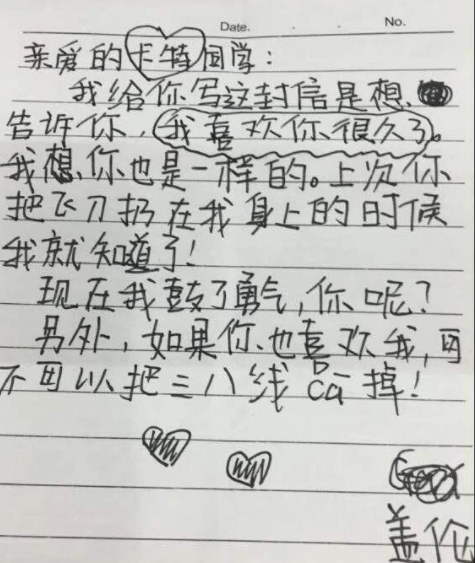 Date. No.
亲爱的卡特同学：
我给你写这封信是想、
告诉你，我喜欢你很久了。
我想、你也是一样的。上次你
把飞刀扔在我身上的时候
我就知道了！
现在我鼓了勇气，你呢？
另外，如果你也喜欢我，可
不可以把三八线cā掉！
盖伦